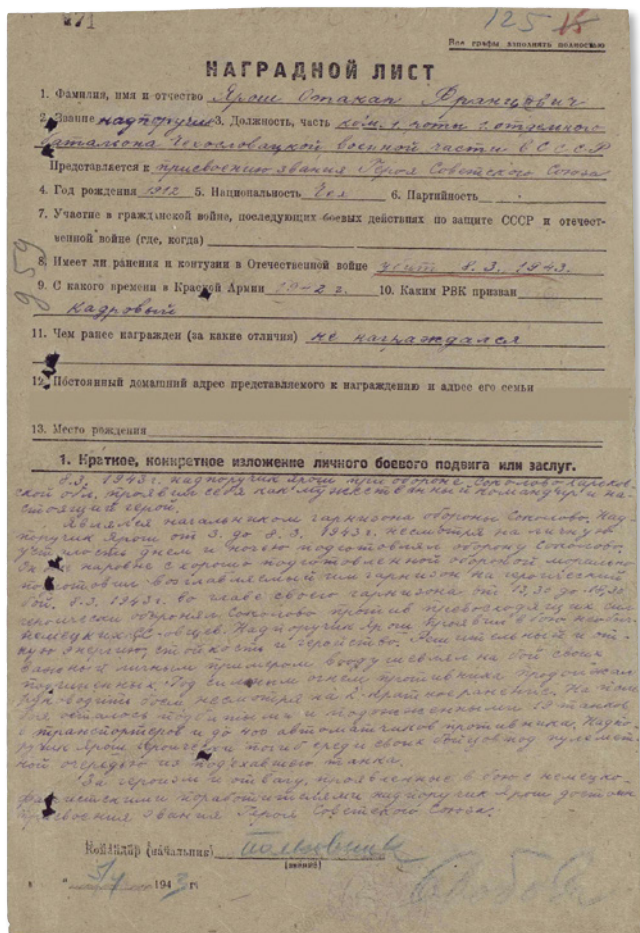 271
125 15
Все графы заполнять полностью
НАГРАДНОЙ ЛИСТ
1. Фамилия, имя и отчество Ярош Отакар Францович
2. Звание надпоручик 3. Должность, часть ком. 1 роты 1. отдельного
баталиона Чехословацкой военной части в СССР
Представляется к присвоению звания Героя Советского Союза
4. Год рождения 1912 5. Национальность Чех 6. Партийность
7. Участие в гражданской войне, последующих боевых действиях по защите СССР и отечест-
венной войне (где, когда)
8. Имеет ли ранения и контузии в Отечественной войне убит 8.3.1943.
9. С какого времени в Красной Армии 19-2 г. 10. Каким РВК призван
кадровый
11. Чем ранее награжден (за какие отличия) не награждался
12. Постоянный домашний адрес представляемого к награждению и адрес его семьи
13. Место рождения
1. Краткое, конкретное изложение личного боевого подвига или заслуг.
8.3. 1943 г. надпоручик Ярош при обороне Соколово Харьков-
ской обл. проявил себя как мужественный командир и на-
стоящий герой.
Являлся начальником гарнизона обороны Соколово. Над-
поручик Ярош от 3. до 8.3. 1943 г. несмотря на личную
усталость днем и ночью подготовлял оборону Соколово.
Он наровне с хорошо подготовленной обороной морально
подготовил возглавляемый им гарнизон на героический
бой. 8.3.1943 г. во главе своего гарнизона от 13,30 до
героически оборонял Соколово против превосходящих сил
немецких СС-овцев. Надпоручик Ярош проявил в бою необыч-
ную энергию, стойкость и геройство. Решительный и от-
важный личным примером воодушевлял на бой своих
подчиненных. Под сильным огнем противника продолжал
руководить боем несмотря на 2-кратное ранение. На поле
боя осталось подбитыми и подожженными 19 танков
6 транспортеров и до 400 автоматчиков противника. Надпо-
ручик Ярош героически погиб среди своих бойцов под пулемет-
ной очередью из подъехавшего танка.
За героизм и отвагу, проявленные в бою с немецко-
фашистскими поработителями надпоручик Ярош достоин
присвоения звания Героя Советского Союза.
Командир (начальник) полковник
(звание)
1943 г. Свобода
259